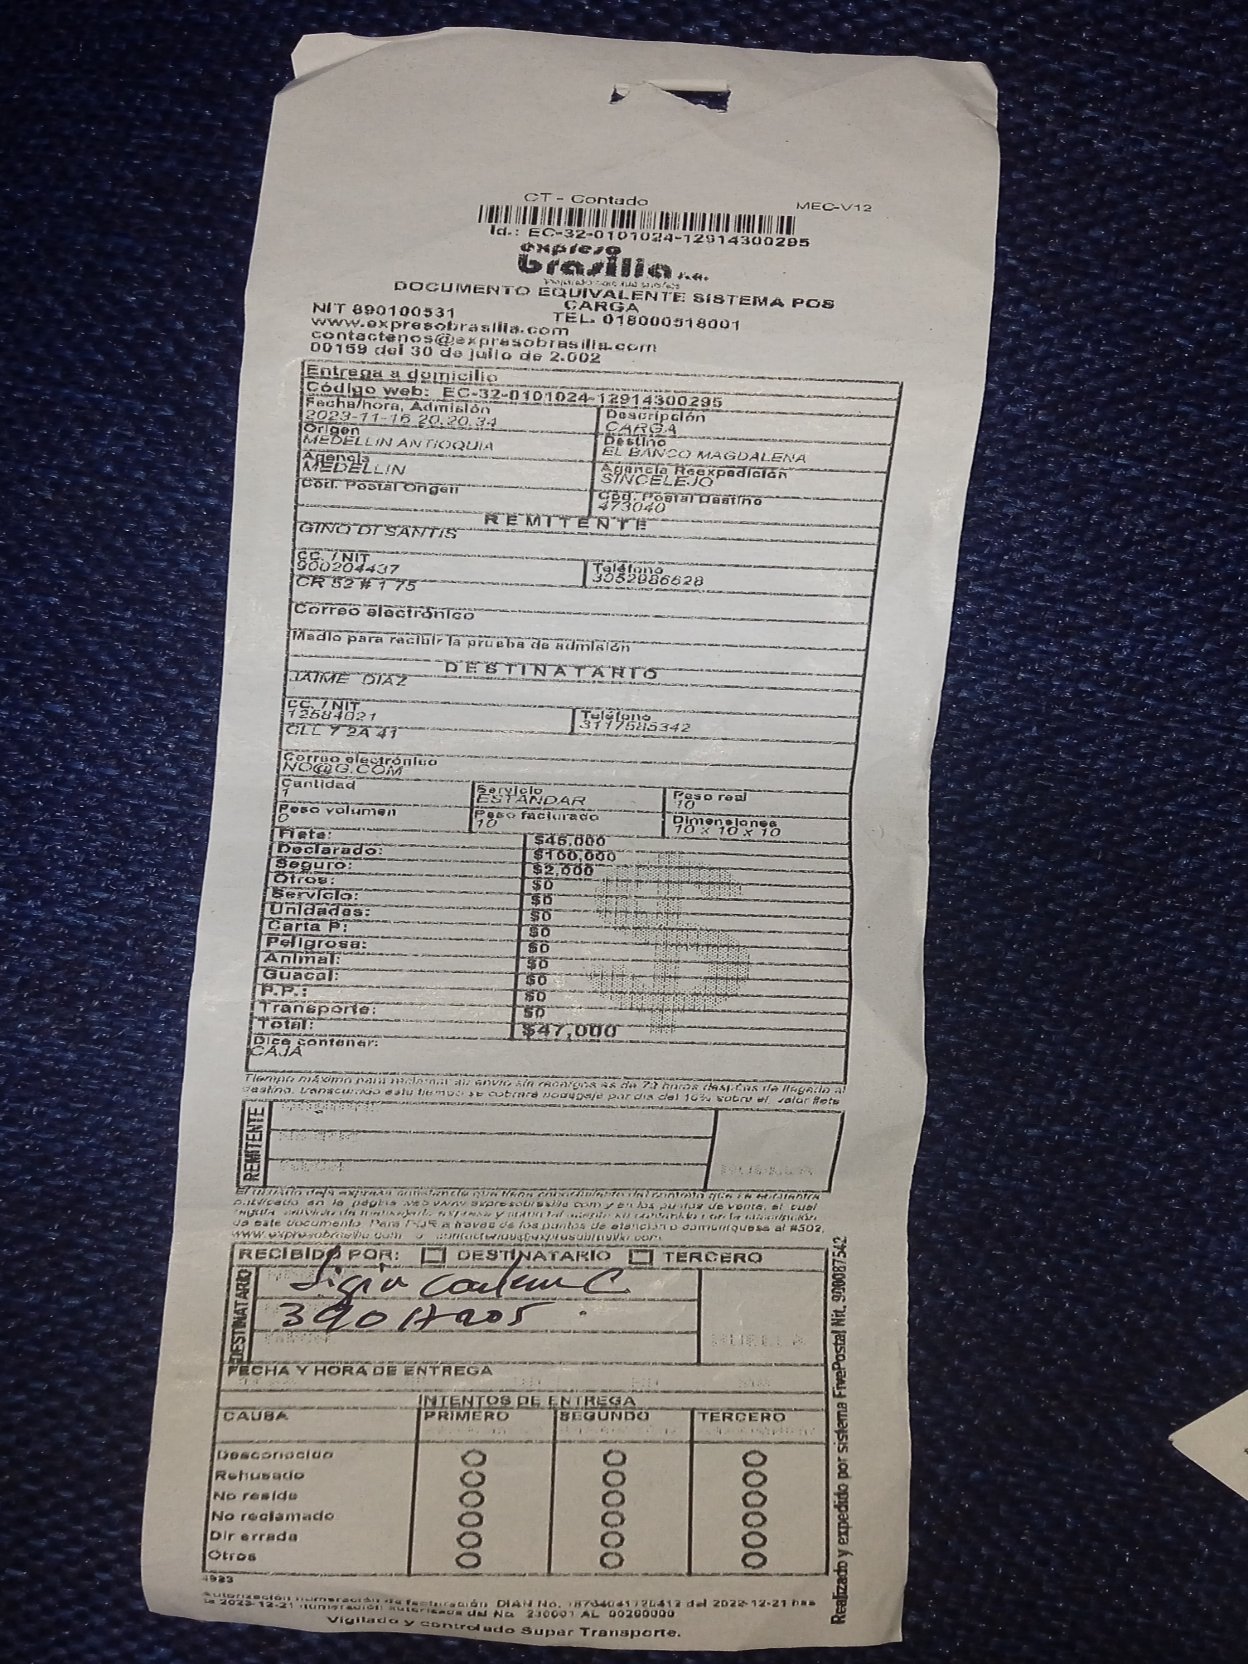 CT - Contado MEC-V12
Id.: EC-32-0101024-12914300295
expreso
brasilia s.a.
DOCUMENTO EQUIVALENTE SISTEMA POS
CARGA
NIT 890100531 TEL. 018000518001
www.expresobrasilia.com
contactenos@expresobrasilia.com
00159 del 30 de julio de 2.002
Entrega a domicilio
Código web: EC-32-0101024-12914300295
Fecha/hora, Admisión Descripción
2023-11-16 20:20:34 CARGA
Origen Destino
MEDELLIN ANTIOQUIA EL BANCO MAGDALENA
Agencia Agencia Reexpedición
MEDELLIN SINCELEJO
Cód. Postal Origen Cód. Postal Destino
473040
REMITENTE
GINO DI SANTIS
CC. / NIT Teléfono
900204437 3052986628
CR 52 # 1 75
Correo electrónico
Medio para recibir la prueba de admisión
DESTINATARIO
JAIME DIAZ
CC. / NIT Teléfono
12584021 3117585342
CLL 7 2A 41
Correo electrónico
NO@G.COM
Cantidad Servicio Peso real
1 ESTANDAR 10
Peso volumen Peso facturado Dimensiones
0 10 10 x 10 x 10
Flete: $45,000
Declarado: $100,000
Seguro: $2,000
Otros: $0
Servicio: $0
Unidades: $0
Carta P: $0
Peligrosa: $0
Animal: $0
Guacal: $0
P.P.: $0
Transporte: $0
Total: $47,000
Dice contener:
CAJA
Tiempo máximo para reclamar su envío sin recargos es de 72 horas después de llegado al
destino, transcurrido este tiempo se cobrará bodegaje por día del 10% sobre el valor flete
REMITENTE
HUELLA
El usuario deja expresa constancia que tiene conocimiento del contrato que se encuentra
publicado en la página web www.expresobrasilia.com y en los puntos de venta, el cual
de este documento. Para PQR a través de los puntos de atención o comuníquese al #502,
www.expresobrasilia.com o contactenos@expresobrasilia.com
RECIBIDO POR: DESTINATARIO TERCERO
DESTINATARIO
HUELLA
FECHA Y HORA DE ENTREGA
INTENTOS DE ENTREGA
CAUSA PRIMERO SEGUNDO TERCERO
Desconocido
Rehusado
No reside
No reclamado
Dir errada
Otros
4923
Autorización numeración de facturación DIAN No. del 2022-12-21 has
ta 2023-12-21 numeración autorizada del No. 230001 AL 00260000
Vigilado y controlado Super Transporte.
Realizado y expedido por sistema FivePostal Nit. 900087542